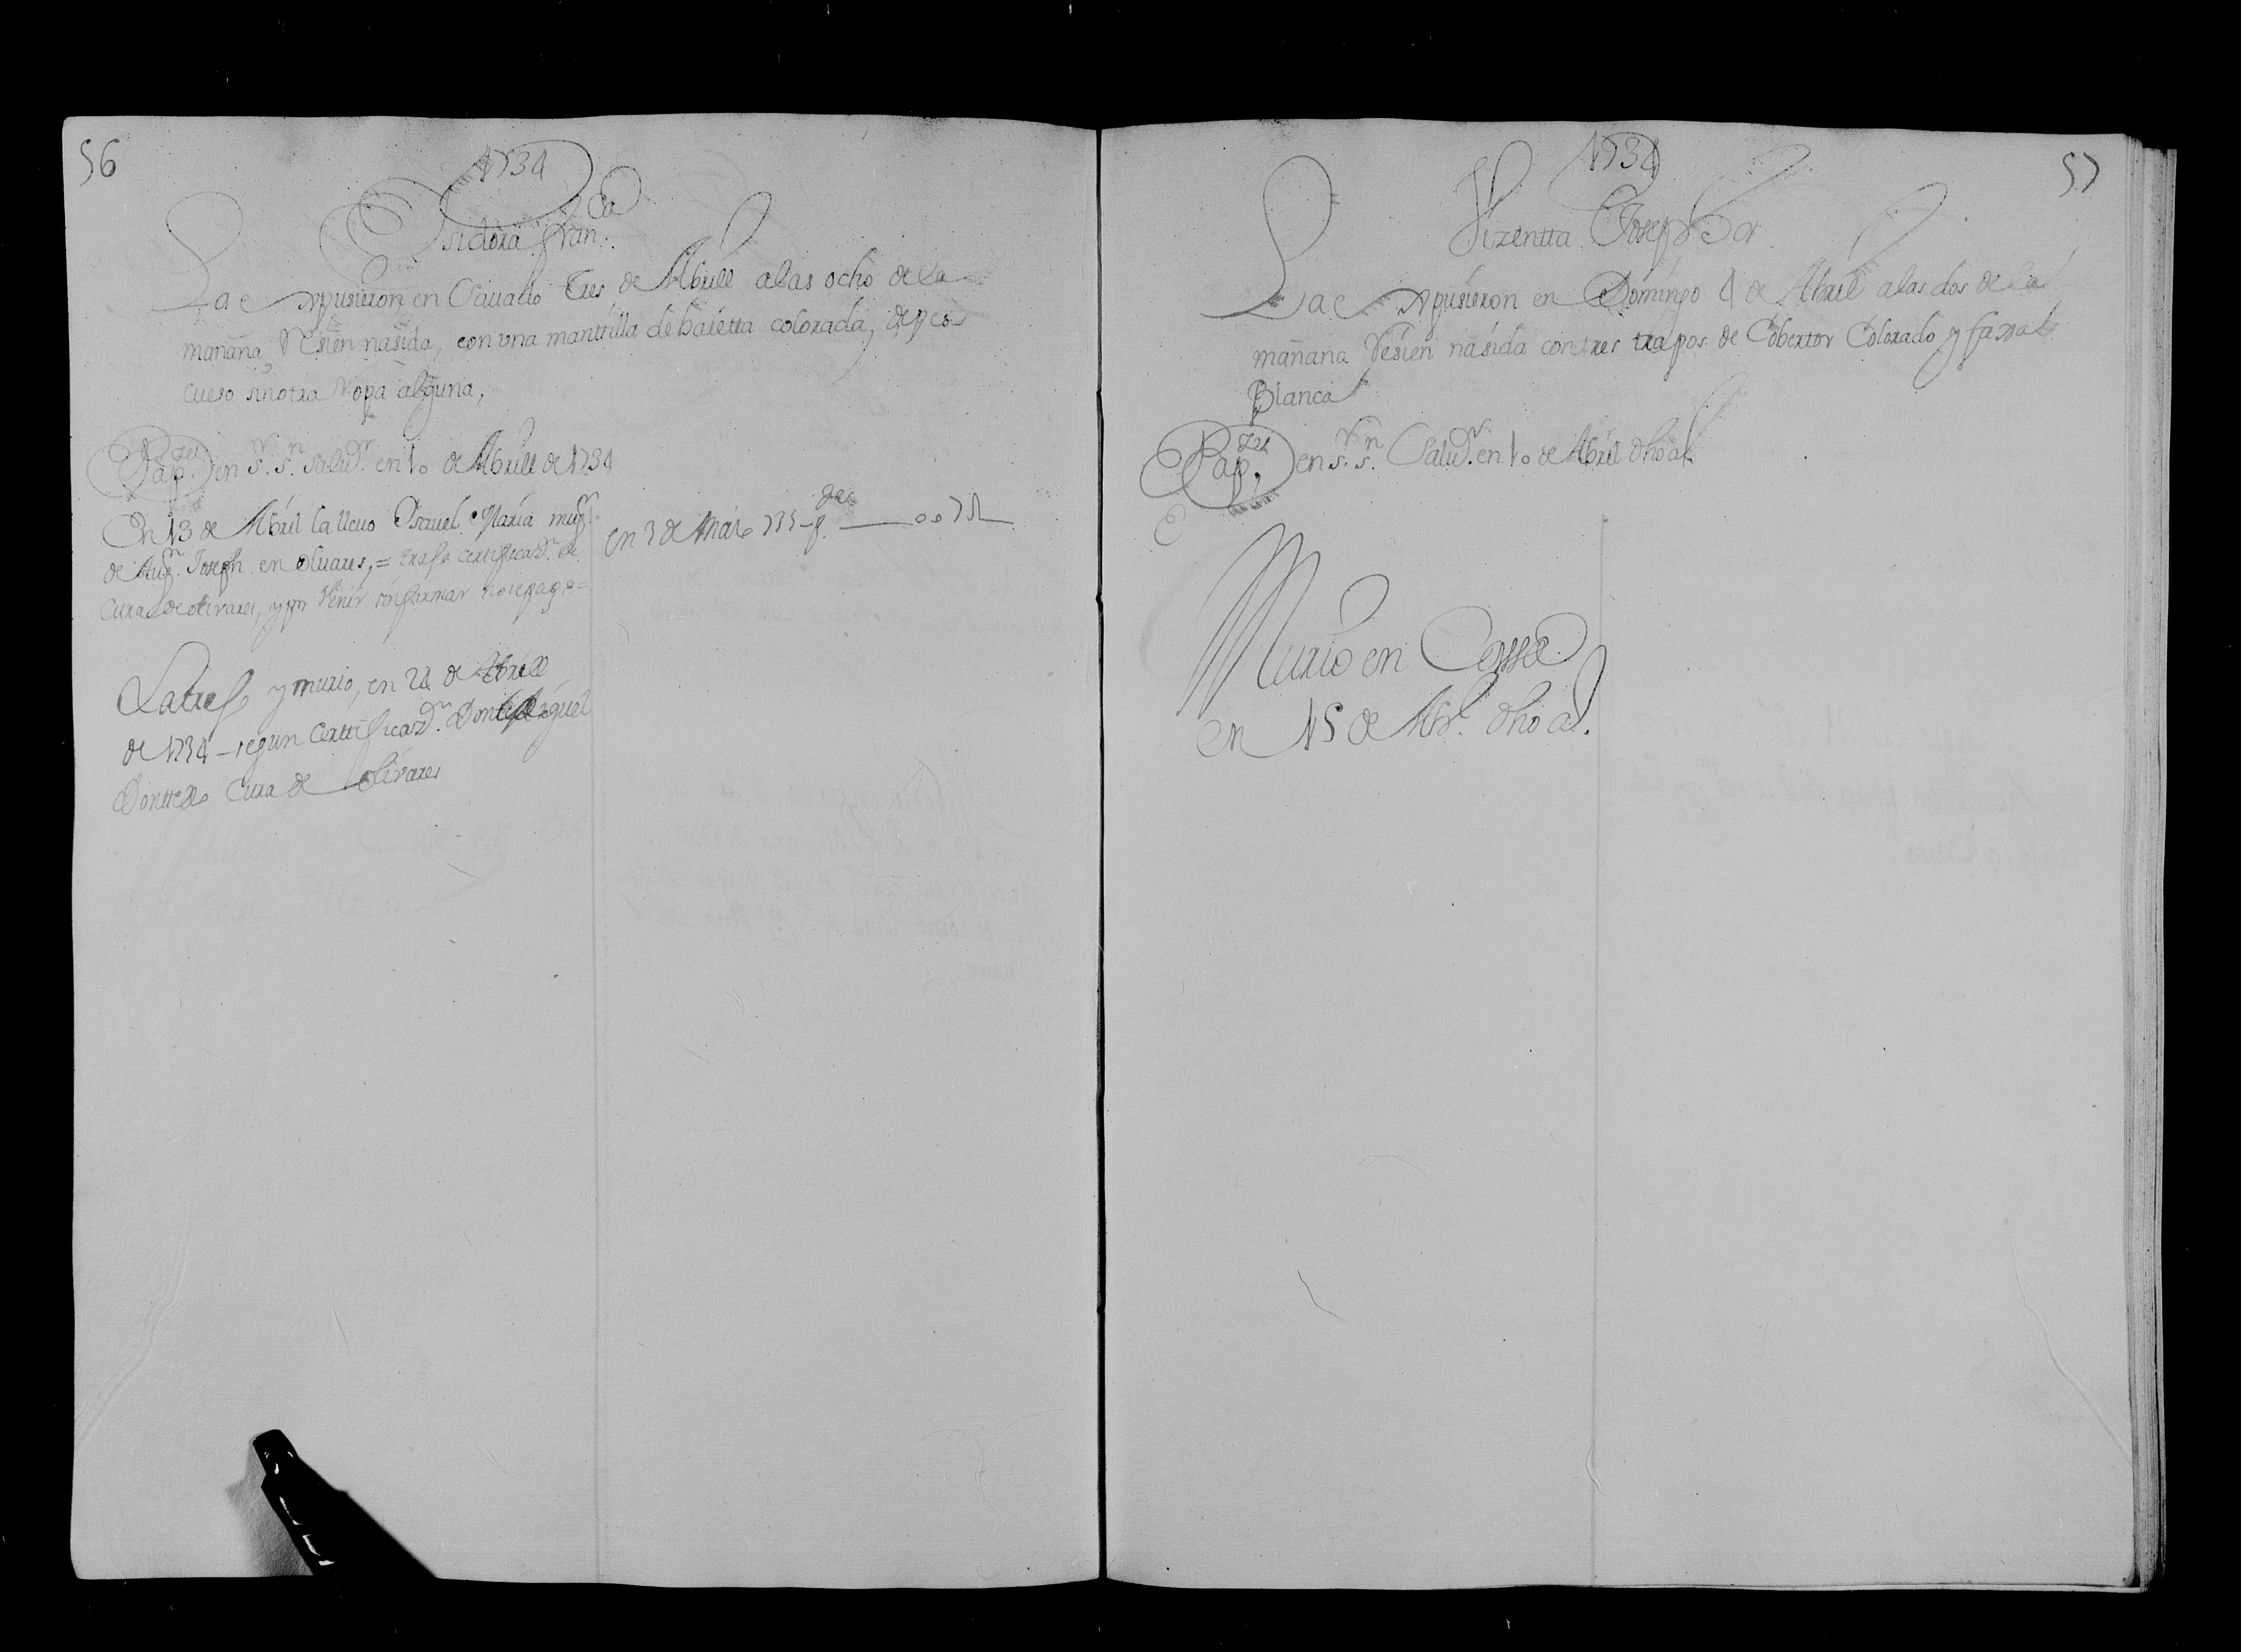 56
1734
Isidora Fran.ca
La expusieron en Savado Tres de Abrill a las ocho de la
mañana, Resien nasida, con una mantilla de baietta colorada, de pes
cueso sin otra Ropa alguna,
en Sr. Sn. Salvdr. en 10 de Abrill de 1734
En 13 de Abril la llevo Ysavel Maria mugr
de Augn Joseph en olivares, = trajo certificazn de
Cura de olivares, y pr venir sin firmar no se pago =
en 3 de
y murio, en 24 de Abrill
de 1734 - segun certtificazn
Cura de olivares
57
1734
Vizentta Josepha
La expusieron en Domingo 4 de Abril a las dos de la
mañana Resien nasida con tres trapos de Cobertor Colorado y faxa
Blanca
en Sr. Sn. Salvr. en 10 de Abril dho a.
Murio en Cassa
en 15 de Abr. dho a.